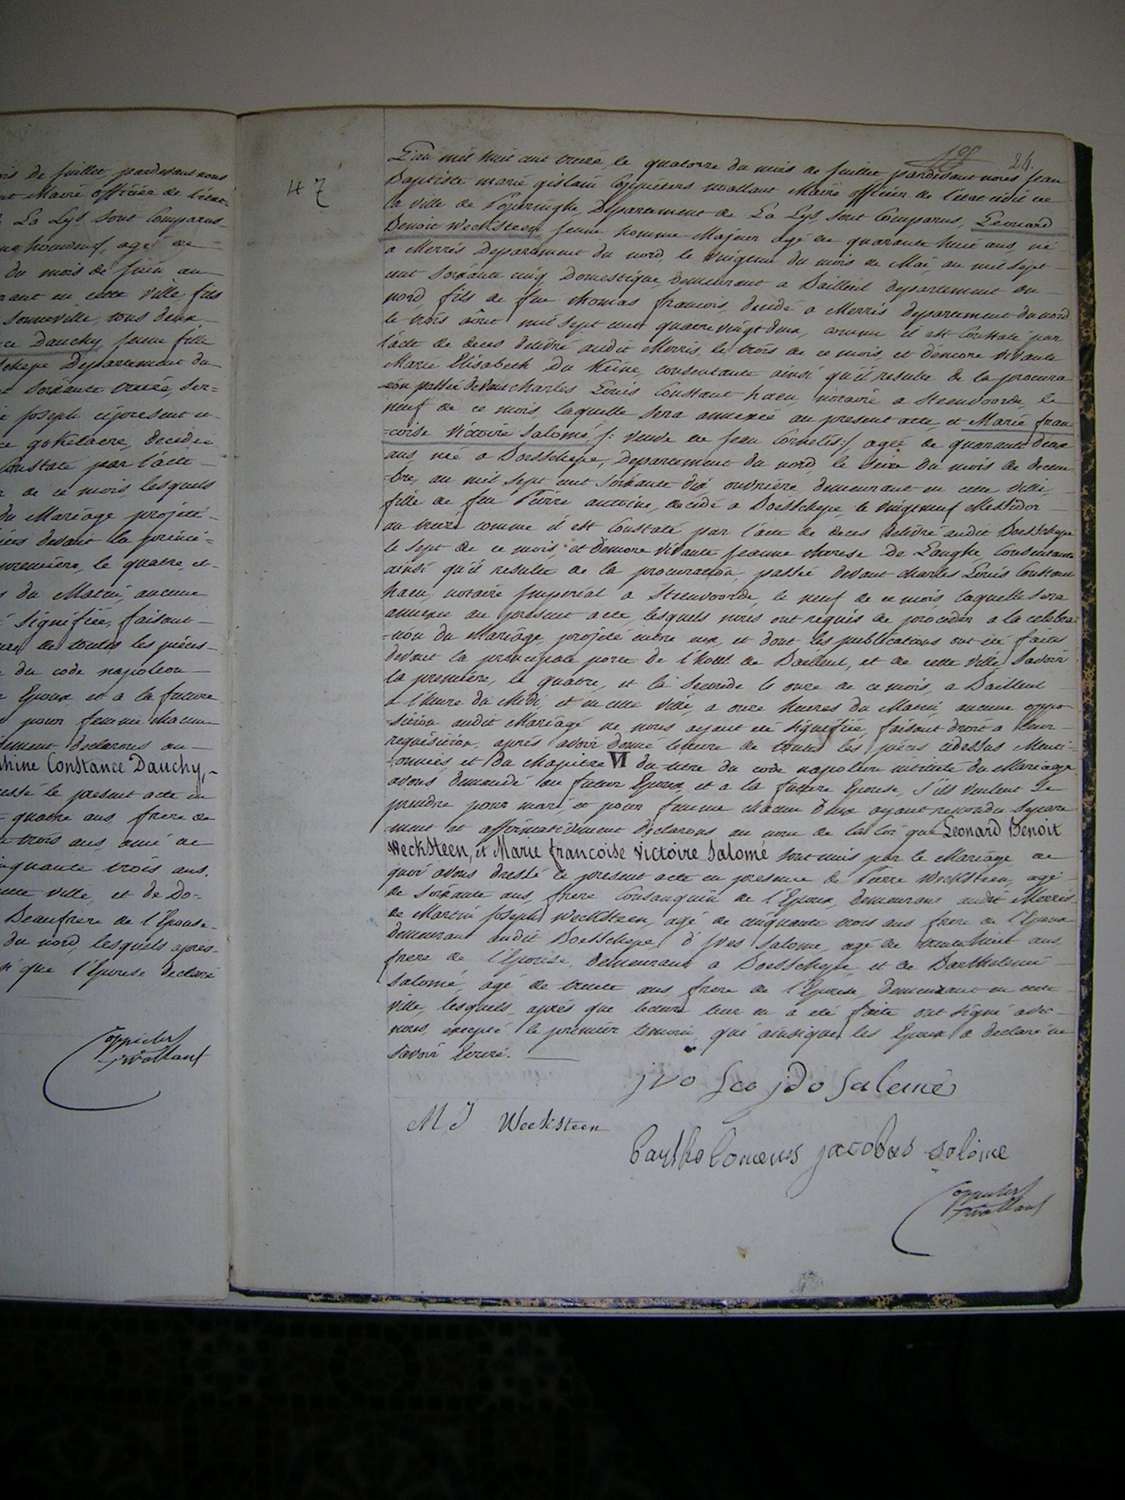 is de juillet pardevant nous
nt Maire officier de l'état
La Lys sont Comparus
agé de
du mois de juin au
rant en cette ville fils
Sonneville, tous deux
ce Dauchy jeune fille
Département du
soixante treize, ser=
Joseph ci present et
decidée
Constaté par l'acte
de ce mois lesquels
du Mariage projeté
devant la princi=
premiere, le quatre, et
du Matin, aucune
signifiée, faisant
de toutes les pièces
du code napoleon
Epoux et a la future
pour femme chacun
declarons au
phine Constance Dauchy,
le present acte en
quatre ans frere de
trois ans ami de
inquante trois ans,
ville, et de Do-
Beaufrere de l'Epouse
du nord, lesquels apres
que l'Epouse declaré
Coppieters
Wallant
47
108 24
L'an mil huit cent treize, le quatorze du mois de juillet pardevant nous Jean
Baptiste marie gislain Coppieters Wallant Maire officier de l'état civil de
la ville de Poperinghe, Département de La Lys sont Comparus, Leonard
Benoit Wecksteen, jeune homme Majeur agé de quarante huit ans, né
a Merris Departement du nord, le vingtieme du mois de Mai au mil sept
cent soixante cinq Domestique demeurant a Bailleul departement du
nord fils de feu thomas francois, decidé a Merris departement du nord
le trois août mil sept cent quatre vingt deux, comme il est Constaté par
l'acte de deces delivré audit Merris, le trois de ce mois, et d'encore vivante
Marie Elisabeth Du Heine, consentante ainsi qu'il resulte de la procura
=tion passée devant charles Louis Constant haeu, notaire a Steenvoorde, le
neuf de ce mois, laquelle sera annexée au present acte et Marie fran
=coise Victoire Salomé /: veuve de jean Cornelis:/ agée de quarante deux
ans née a Boesschepe, Departement du nord le seize du mois de decem
bre, au mil sept cent soixante dix ouvrière demeurant en cette ville,
fille de feu Pierre antoine, decidé a Boesschepe le vingtneuf Messidor
an treize comme il est Constaté par l'acte de deces delivré audit Boesschepe
le sept de ce mois, et d'encore vivante Jeanne therese De Langhe Consentante
ainsi qu'il resulte de la procuration, passée devant charles Louis Constant
haeu, notaire Imperial a Steenvoorde, le neuf de ce mois, laquelle sera
annexée au present acte, lesquels nous ont requis de proceder a la celebra
=tion du Mariage projeté entre eux, et dont les publications ont été faites
devant la principale porte de l'hotel de Bailleul, et de cette ville, Savoir
la premiere, le quatre, et la seconde le onze de ce mois, a Bailleul
a l'heure du Midi, et en cette ville, a onze heures du Matin, aucune oppo
sition audit Mariage ne nous ayant été signifiée, faisant droit a leur
requisition, après avoir donné lecture de toutes les pièces cidessus Menti
=onnées et du chapitre VI du titre du code napoleon intitulé du Mariage
avons demandé au futur Epoux, et a la future Epouse, s'ils veulent se
prendre pour mari et pour femme chacun d'eux ayant repondu separe
=ment et affirmativement declarons au nom de la loi que Leonard Benoit
Wecksteen, et Marie francoise victoire Salomé sont unis par le Mariage de
quoi avons dressé le present acte en presence de Pierre Wecksteen, agé
de soixante ans, frere Consanguin de l'Epoux, demeurant audit Merris
de Martin Joseph Wecksteen, agé de cinquante trois ans frere de l'Epoux
demeurant audit Boesschepe d'Ives Salomé, agé de trentehuit ans
frere de l'Epouse, demeurant a Boesschepe et de Bartholomé
Salomé, agé de trente ans frere de l'Epouse, demeurant en cette
ville, lesquels, après que lecture leur en a été faite ont signé avec
nous, excepté le premier temoin, qui ainsi que les Epoux a declaré ne
savoir Ecrire.
jvo Leo jdo Salomé
M J Weeksteen
bartholomeus jacobus Salome
Coppieters
Wallant